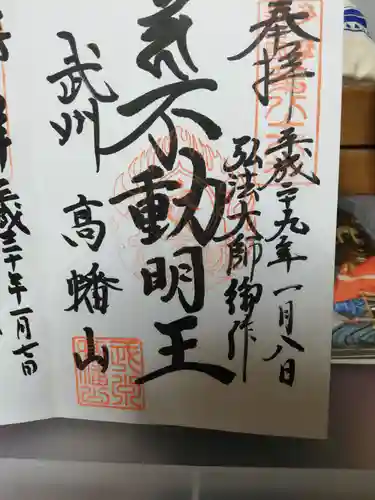 奉拝
平成二十九年一月八日
弘法大師御作
不動明王
武州
高幡山
拝
成三十年一月七日